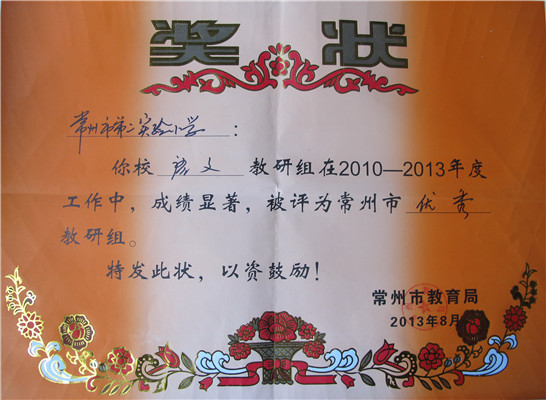 奖 状
常州市第二实验小学：
你校 语文 教研组在2010—2013年度
工作中，成绩显著，被评为常州市 优秀
教研组。
特发此状，以资鼓励！
常州市教育局
2013年8月